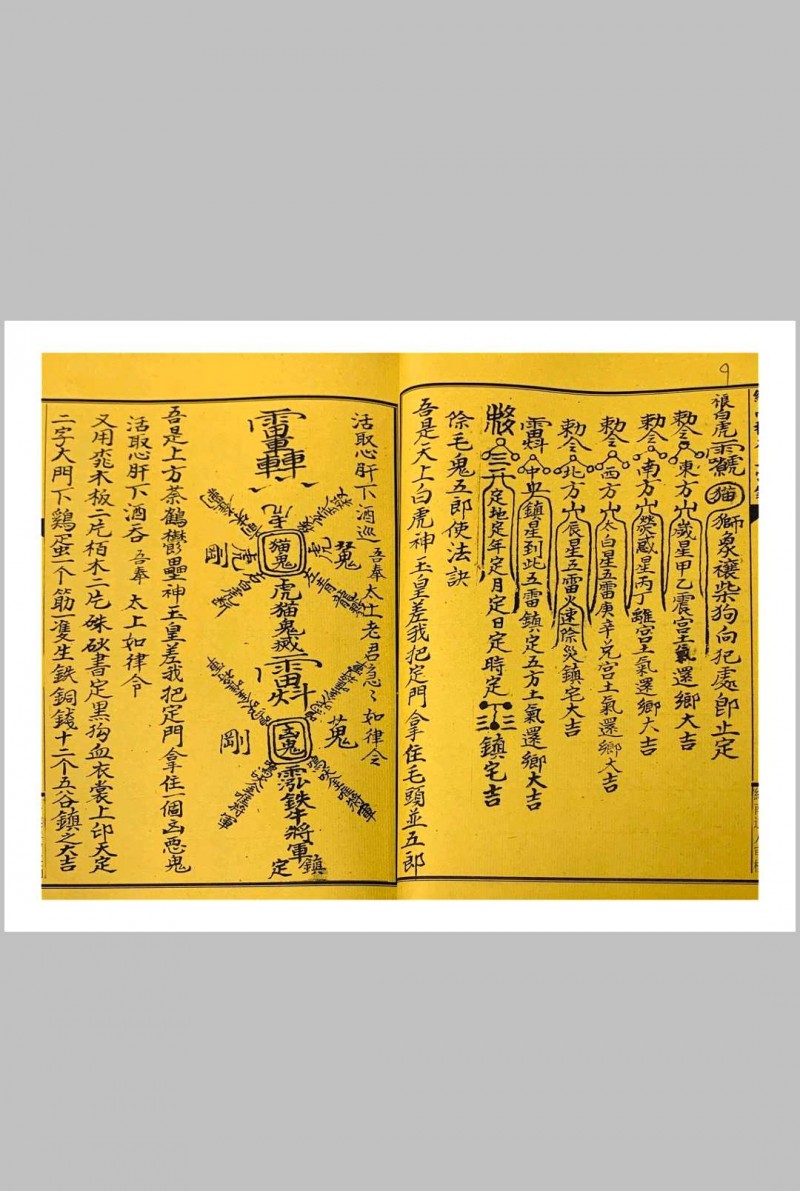 9
狼白虎 貓 獅象禳柴狗向犯處郎止定
敕令東方 歲星甲乙震宮土氣還鄉大吉
敕令南方 熒惑星丙丁離宮土氣還鄉大吉
敕令西方 太白星五雷庚辛兌宮土氣還鄉大吉
敕令北方 辰星五雷火速除災鎮宅大吉
中央鎮星到此五雷鎮定五方土氣還鄉大吉
定地定年定月定日定時定 鎮宅吉
除毛鬼五郎使法訣
吾是天上白虎神玉皇差我把定門拿住毛頭並五郎
活取心肝下酒巡 吾奉太上老君急々如律令
貓鬼
虎貓鬼滅
剛
五青龍
鬼
剛
鐵牛將軍鎮定
吾是上方荼鶴鬱壘神玉皇差我把定門拿住一個凶惡鬼
活取心肝下酒吞 吾奉 太上如律令
又用桃木板二片栢木二片硃砂書定黑狗血衣裳上印天定
二字大門下鷄蛋一个筋一隻生鉄銅錢十二个五谷鎮之大吉